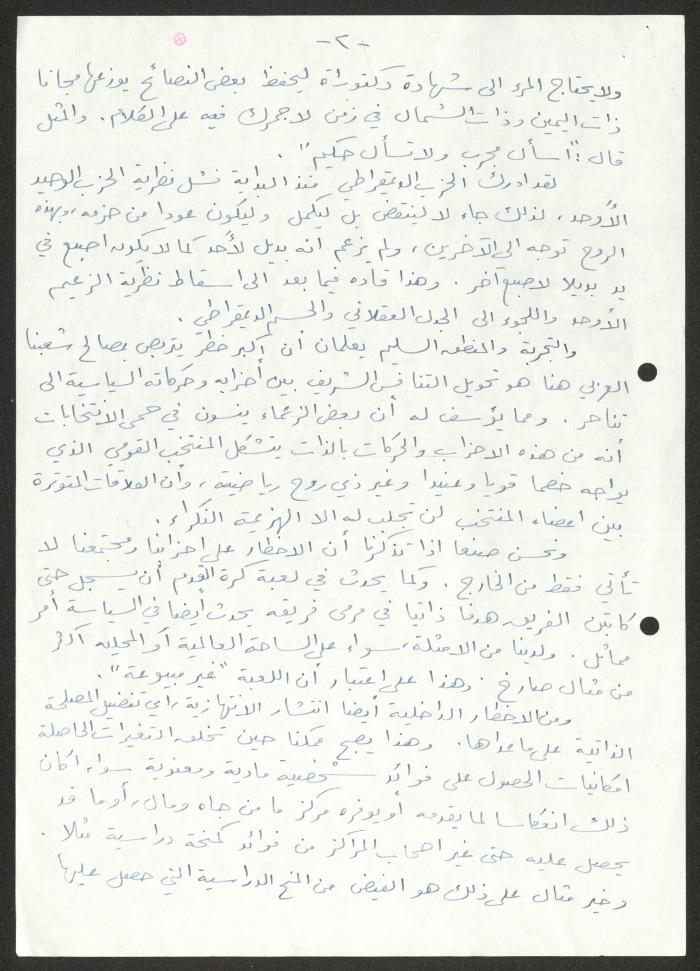 -٢-
ولا يحتاج المرء الى شهادة دكتوراة ليحفظ بعض النصائح يوزعها مجانا
ذات اليمين وذات الشمال في زمن لا جمرك فيه على الكلام. والمثل
قال: "اسأل مجرب ولا تسأل حكيم".
لقد ادرك الحزب الديمقراطي منذ البداية فشل نظرية الحزب الوحيد
الأوحد، لذلك جاء لا لينتقض بل ليكمل وليكون عودا من حزمه، وبهذه
الروح توجه الى الآخرين، ولم يزعم انه بديل لأحد كما لا يكون اصبع في
يد بديلا لاصبع آخر. وهذا قاده فيما بعد الى اسقاط نظرية الزعيم
الأوحد واللجوء الى الجدل العقلاني والحسم الديمقراطي.
والتجربة والمنطق السليم يعلمان أن أكبر خطر يتربص بمصالح شعبنا
العربي هنا هو تحويل التنافس الشريف بين أحزابه وحركاته السياسية الى
تناحر. ومما يؤسف له أن بعض الزعماء ينسون في حمى الانتخابات
أنه من هذه الاحزاب والحركات بالذات يتشكل المنتخب القومي الذي
يواجه خصما قويا وعنيدا وغير ذي روح رياضية، وأن العلاقات المتوترة
بين اعضاء المنتخب لن تجلب له الا الهزيمة النكراء.
ونحسن صنعا اذا تذكرنا أن الاخطار على احزابنا ومجتمعنا لا
تأتي فقط من الخارج. وكما يحدث في لعبة كرة القدم أن يسجل حتى
كابتن الفريق هدفا ذاتيا في مرمى فريقه يحدث أيضا في السياسة أمر
مماثل. ولدينا من الامثلة، سواء على الساحة العالمية أو المحلية أكثر
من مثال صارخ. وهذا على اعتبار أن اللعبة "غير مبيوعة".
ومن الاخطار الداخلية أيضا انتشار الانتهازية، أي تفضيل المصلحة
الذاتية على ما عداها. وهذا يصبح ممكنا حين تخلق التغيرات الحاصلة
امكانيات الحصول على فوائد شخصية مادية ومعنوية سواء اكان
ذلك انعكاسا لما يقدمه أو يوفره مركز ما من جاه ومال، أو ما قد
يحصل عليه حتى غير اصحاب المراكز من فوائد كمنحة دراسية مثلا.
وخير مثال على ذلك هو الفيض من المنح الدراسية التي حصل عليها